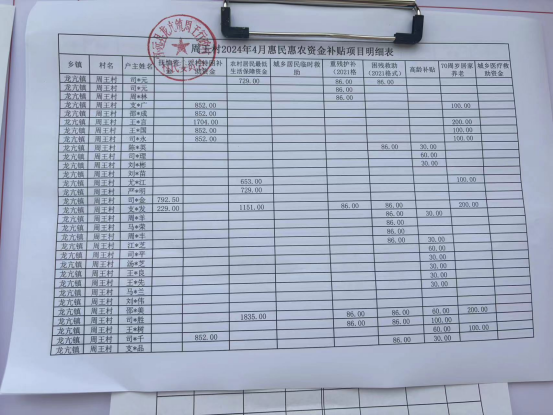 周王村2024年4月惠民惠农资金补贴项目明细表
乡镇 村名 户主姓名 农村居民最低生活保障资金 城乡居民临时救助 重残护补(2021格 困残救助(2021格式) 高龄补贴 70周岁居家养老 城乡医疗救助资金
龙亢镇 周王村 司*元 729.00 86.00 86.00
龙亢镇 周王村 司*元 86.00
龙亢镇 周王村 周*林 86.00
龙亢镇 周王村 支*广 852.00 100.00
龙亢镇 周王村 邵*成 852.00
龙亢镇 周王村 王*言 1704.00 200.00
龙亢镇 周王村 王*国 852.00 100.00
龙亢镇 周王村 司*永 852.00 100.00
龙亢镇 周王村 陈*英 86.00 30.00
龙亢镇 周王村 司*理 60.00
龙亢镇 周王村 刘*彬 30.00
龙亢镇 周王村 刘*苗
龙亢镇 周王村 尤*江 653.00 100.00
龙亢镇 周王村 严*明 729.00
龙亢镇 周王村 司*金 792.50
龙亢镇 周王村 支*发 229.00 1151.00 86.00 86.00 200.00
龙亢镇 周王村 周*羊 86.00 30.00
龙亢镇 周王村 马*荣 86.00
龙亢镇 周王村 周*丰 86.00
龙亢镇 周王村 江*芝 86.00 30.00
龙亢镇 周王村 司*平 60.00
龙亢镇 周王村 汤*芝 30.00
龙亢镇 周王村 王*良 30.00
龙亢镇 周王村 王*先 30.00
龙亢镇 周王村 马*兰 30.00
龙亢镇 周王村 刘*伟
龙亢镇 周王村 邵*美 86.00 60.00 200.00
龙亢镇 周王村 司*胜 1835.00 86.00 86.00 30.00
龙亢镇 周王村 王*树 60.00 100.00
龙亢镇 周王村 司*千 852.00 86.00 30.00
龙亢镇 周王村 支*品